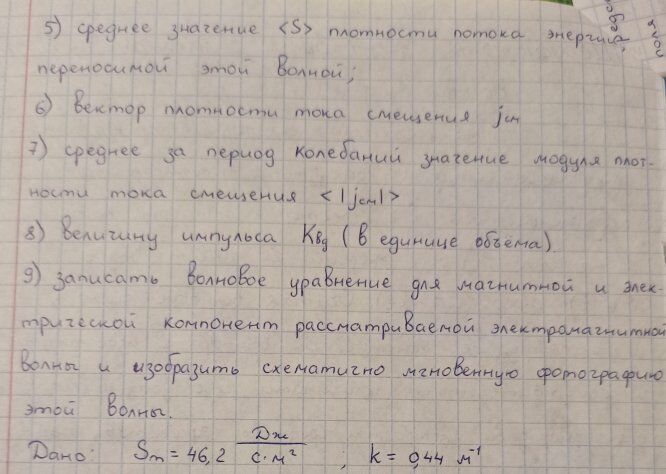 5) среднее значение <S> плотности потока энергии,
переносимой этой волной;
6) вектор плотности тока смещения jсм
7) среднее за период колебаний значение модуля плот-
ности тока смещения <|jсм|>
8) величину импульса Kед (в единице объёма)
9) записать волновое уравнение для магнитной и элек-
трической компонент рассматриваемой электромагнитной
волны и изобразить схематично мгновенную фотографию
этой волны.
Дано: Sm = 46,2 Дж/с·м² ; k = 0,44 м⁻¹